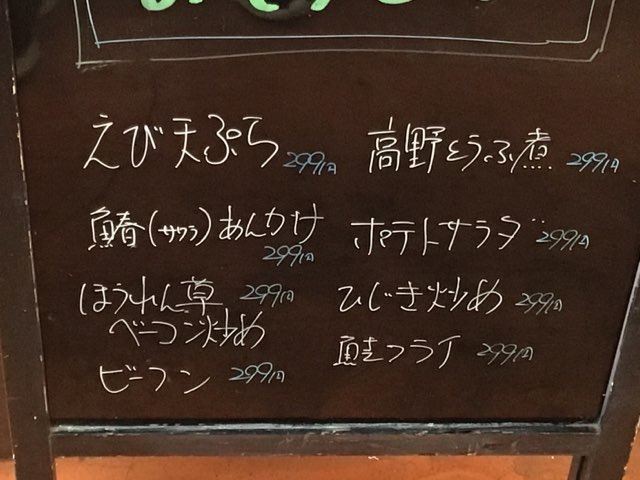 えび天ぷら 299円
鰆(サワラ)あんかけ
299円
ほうれん草 299円
ベーコン炒め
ビーフン 299円
高野とうふ煮 299円
ポテトサラダ 299円
ひじき炒め 299円
鮭フライ 299円